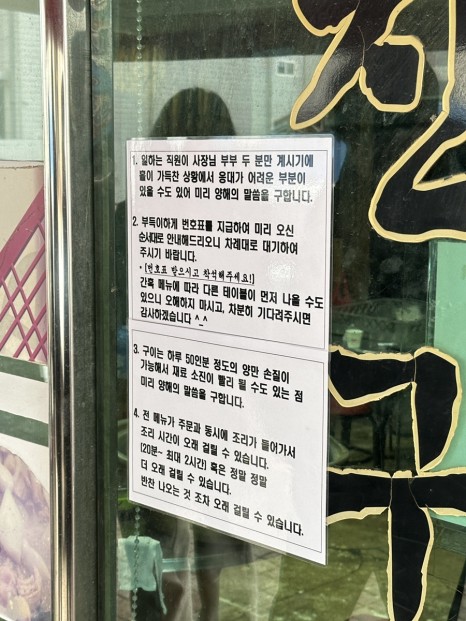 1. 일하는 직원이 사장님 부부 두 분만 계시기에
홀이 가득찬 상황에서 응대가 어려운 부분이
있을 수도 있어 미리 양해의 말씀을 구합니다.
2. 부득이하게 번호표를 지급하여 미리 오신
순서대로 안내해드리오니 차례대로 대기하여
주시기 바랍니다.
* [번호표 받으시고 착석해주세요!]
간혹 메뉴에 따라 다른 테이블이 먼저 나올 수도
있으니 오해하지 마시고, 차분히 기다려주시면
감사하겠습니다 ^_^
3. 구이는 하루 50인분 정도의 양만 손질이
가능해서 재료 소진이 빨리 될 수도 있는 점
미리 양해의 말씀을 구합니다.
4. 전 메뉴가 주문과 동시에 조리가 들어가서
조리 시간이 오래 걸릴 수 있습니다.
(20분~ 최대 2시간) 혹은 정말 정말
더 오래 걸릴 수 있습니다.
반찬 나오는 것 조차 오래 걸릴 수 있습니다.